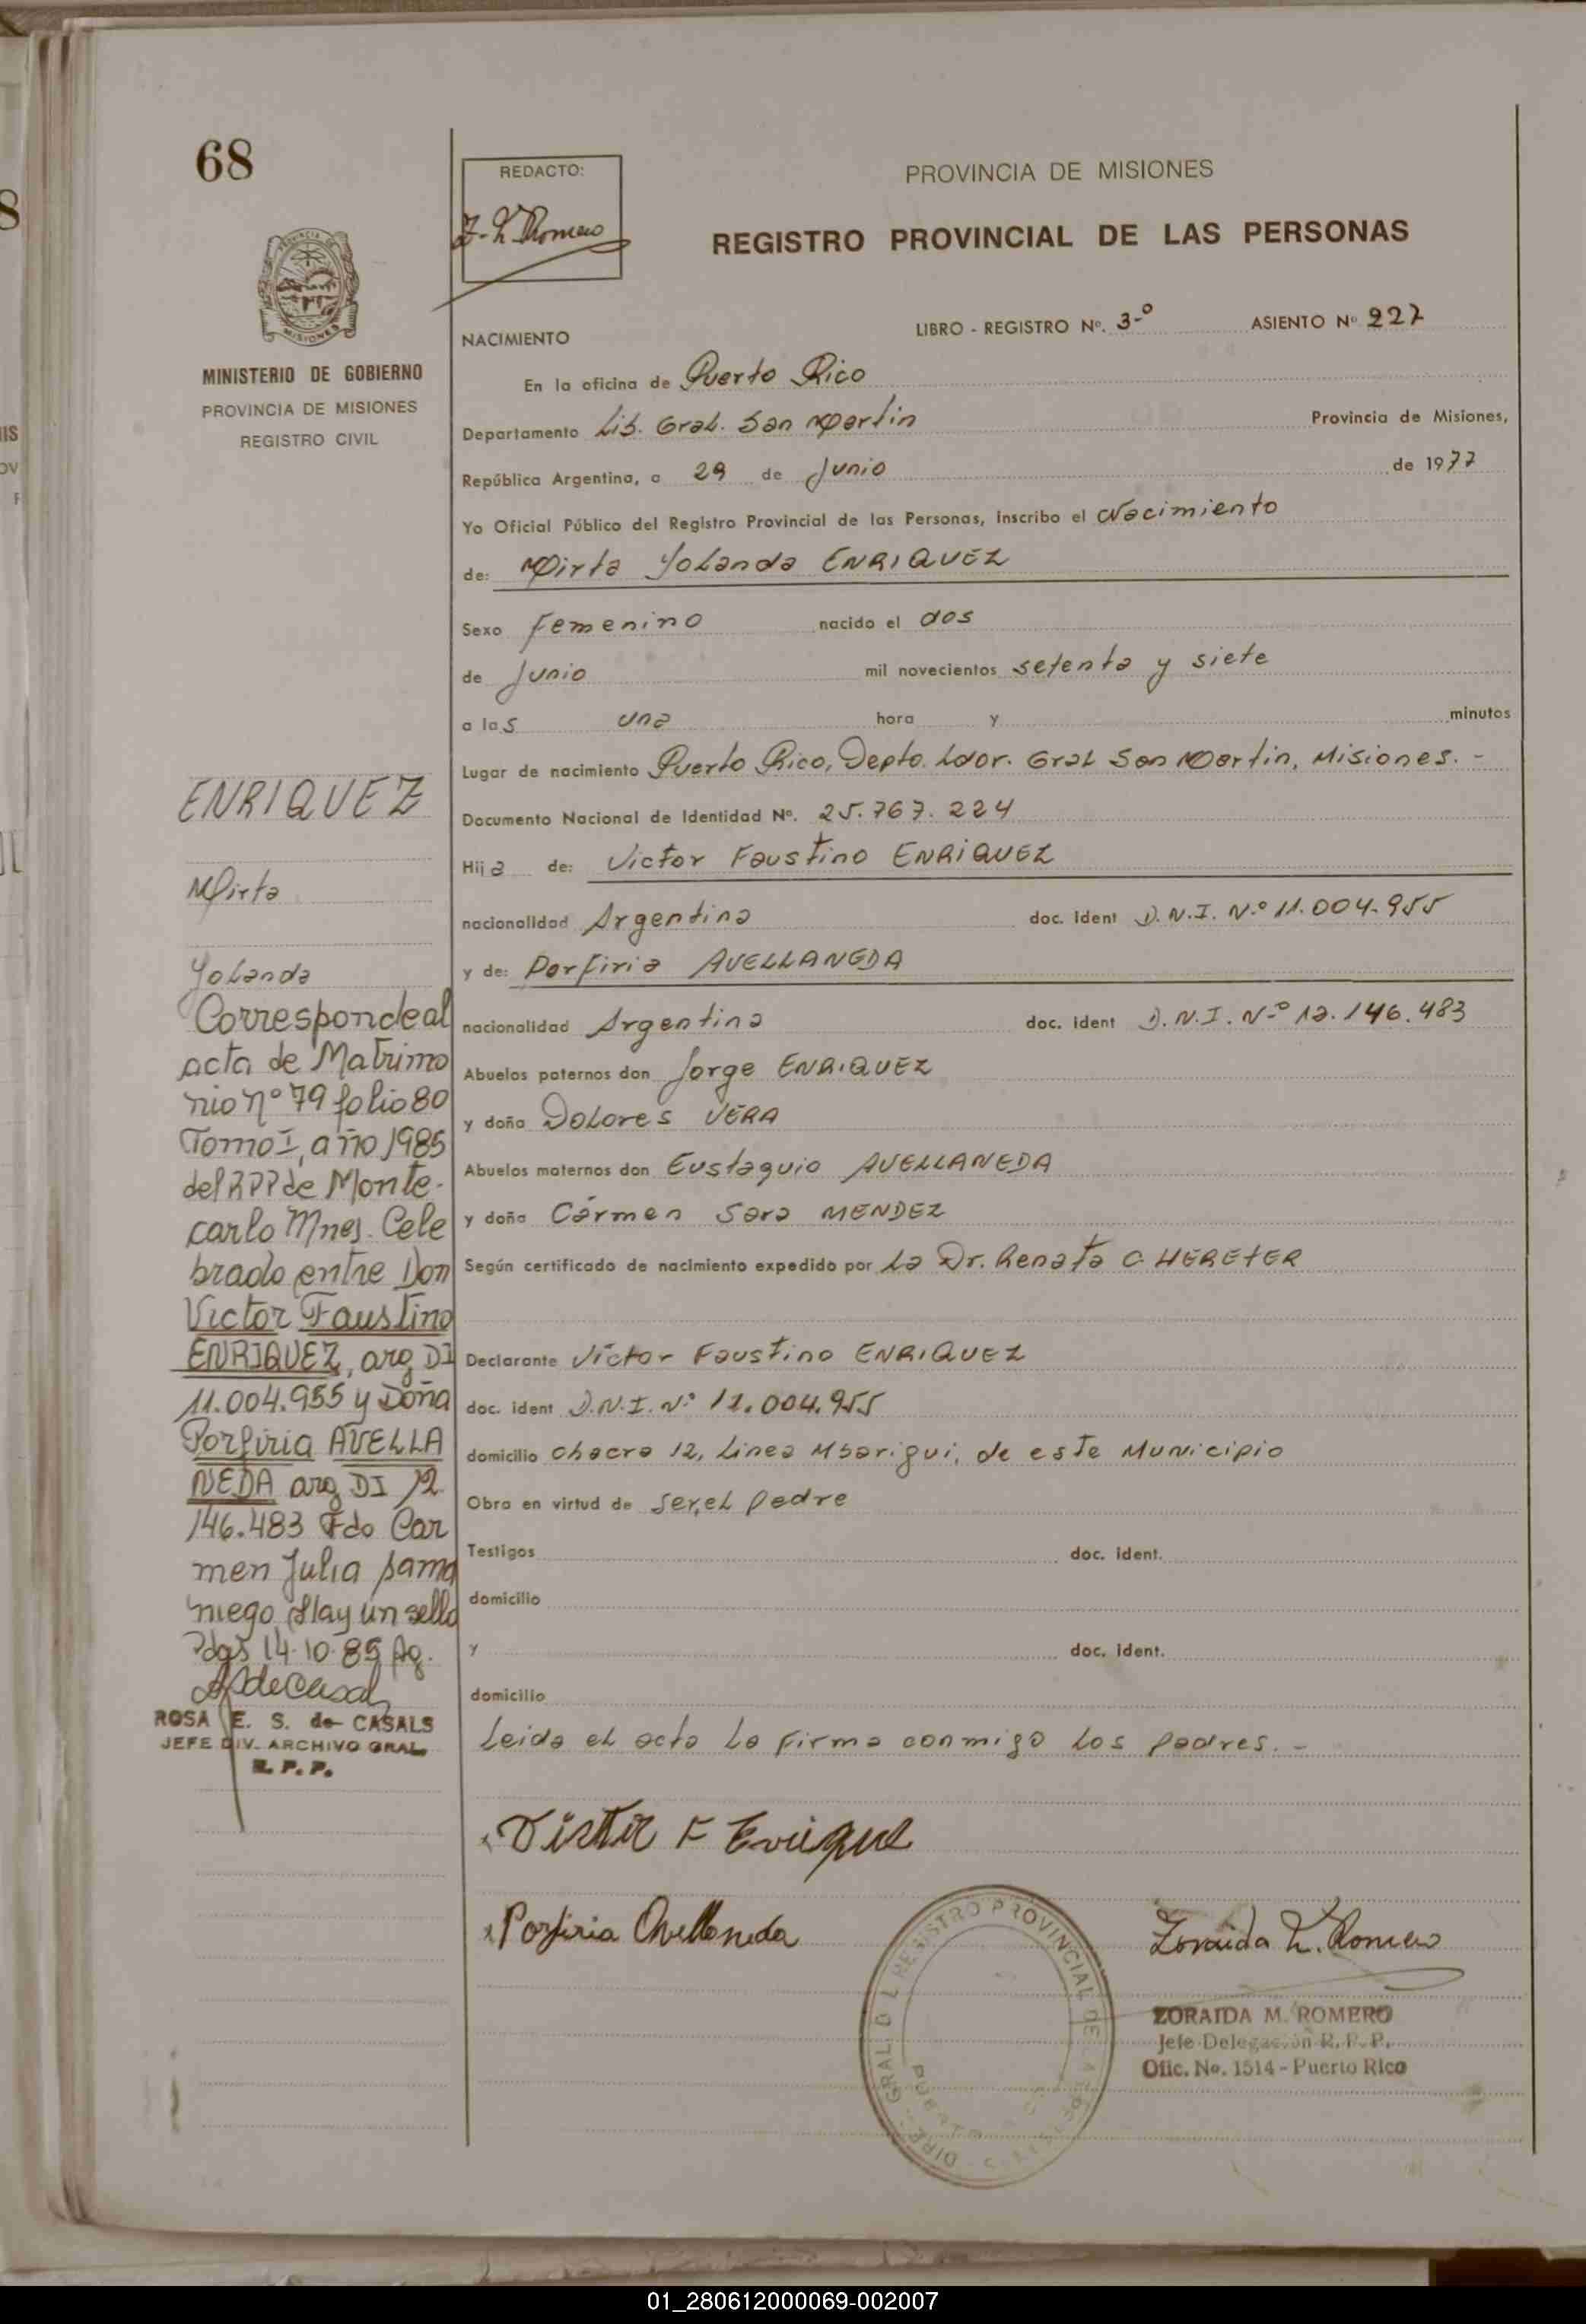 68
REDACTO:
Z. M. Romero
PROVINCIA DE MISIONES
REGISTRO PROVINCIAL DE LAS PERSONAS
MINISTERIO DE GOBIERNO
PROVINCIA DE MISIONES
REGISTRO CIVIL
NACIMIENTO LIBRO - REGISTRO Nº. 3-º ASIENTO Nº 227
En la oficina de Puerto Rico
Departamento Lib. Gral. San Martin Provincia de Misiones,
República Argentina, a 29 de Junio de 1977
Yo Oficial Público del Registro Provincial de las Personas, inscribo el Nacimiento
de: Mirta Yolanda ENRIQUEZ
Sexo Femenino nacido el dos
de Junio mil novecientos setenta y siete
a las una hora y minutos
Lugar de nacimiento Puerto Rico, Depto. Ldor. Gral San Martin, Misiones. -
Documento Nacional de Identidad Nº. 25.767.224
Hija de: Victor Faustino ENRIQUEZ
nacionalidad Argentina doc. ident D.N.I. N.º 11.004.955
y de: Porfiria AVELLANEDA
nacionalidad Argentina doc. ident D.N.I. N-º 12.146.483
Abuelos paternos don Jorge ENRIQUEZ
y doña Dolores VERA
Abuelos maternos don Eustaquio AVELLANEDA
y doña Cármen Sara MENDEZ
Según certificado de nacimiento expedido por La Dr. Renata C. HERETER
Declarante Víctor Faustino ENRIQUEZ
doc. ident D.N.I. Nº 11.004.955
domicilio chacra 12, Linea Mbarigui, de este Municipio
Obra en virtud de ser,el padre
Testigos doc. ident.
domicilio
y doc. ident.
domicilio
Leida el acta la firma conmigo los padres. -
Victor F Enrique
Porfiria Avellaneda
Zoraida M. Romero
ZORAIDA M. ROMERO
Jefe Delegación R. P. P.
Ofic. No. 1514 - Puerto Rico
REGISTRO PROVINCIAL DE
ENRIQUEZ
Mirta
Yolanda
Corresponde al
acta de Matrimo
nio nº 79 folio 80
Tomo I, año 1985
del RPP de Monte-
carlo Mnes. Cele
brado entre Don
Victor Faustino
ENRIQUEZ, arg DI
11.004.955 y Doña
Porfiria AVELLA
NEDA arg DI 12.
146.483 Fdo Car
men Julia Sama
niego. Hay un sello
Pdas 14-10-85 Ag.
ROSA E. S. de CASALS
JEFE DIV. ARCHIVO GRAL.
R. P. P.
01_280612000069-002007